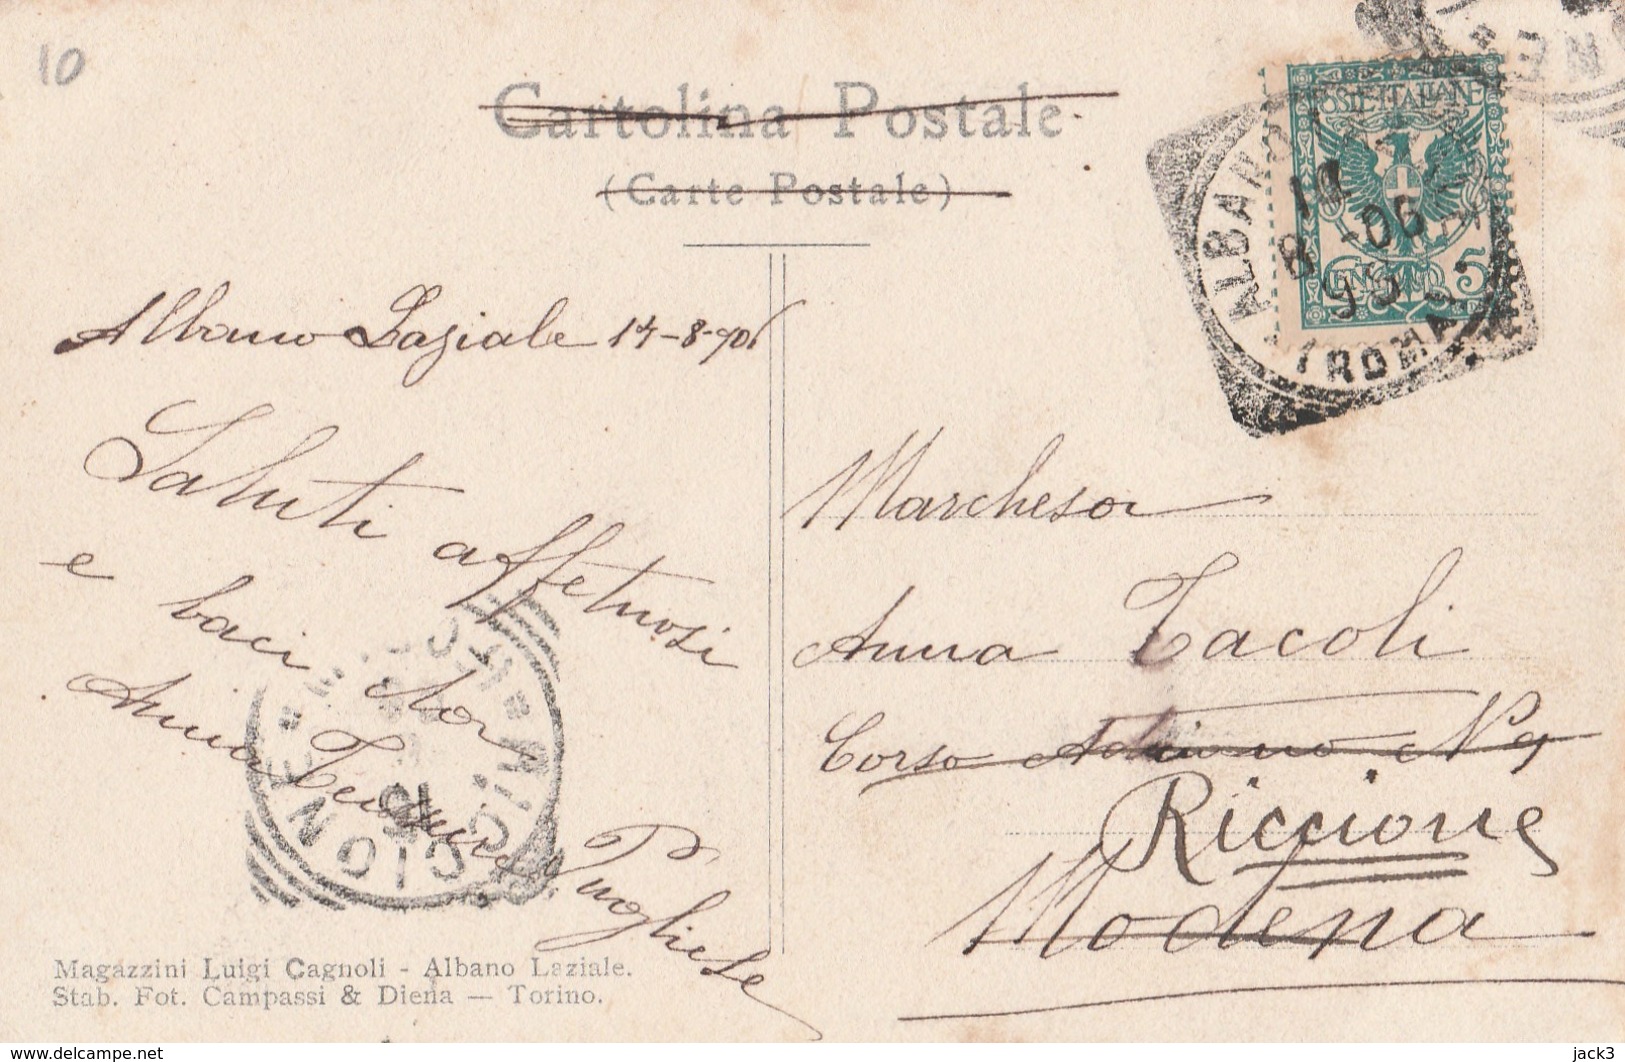 10
Cartolina Postale
(Carte Postale)
POSTE ITALIANE
CENT. 5
ALBANO
8 -06
(ROMA)
Albano Laziale 14-8-906
Saluti affettuosi
e baci da
Anna
Pugliese
Marchesa
Anna Tacoli
Corso Adriano N° 9
Riccione
Modena
RICCIONE
Magazzini Luigi Cagnoli - Albano Laziale.
Stab. Fot. Campassi & Diena — Torino.
jack3
www.delcampe.net